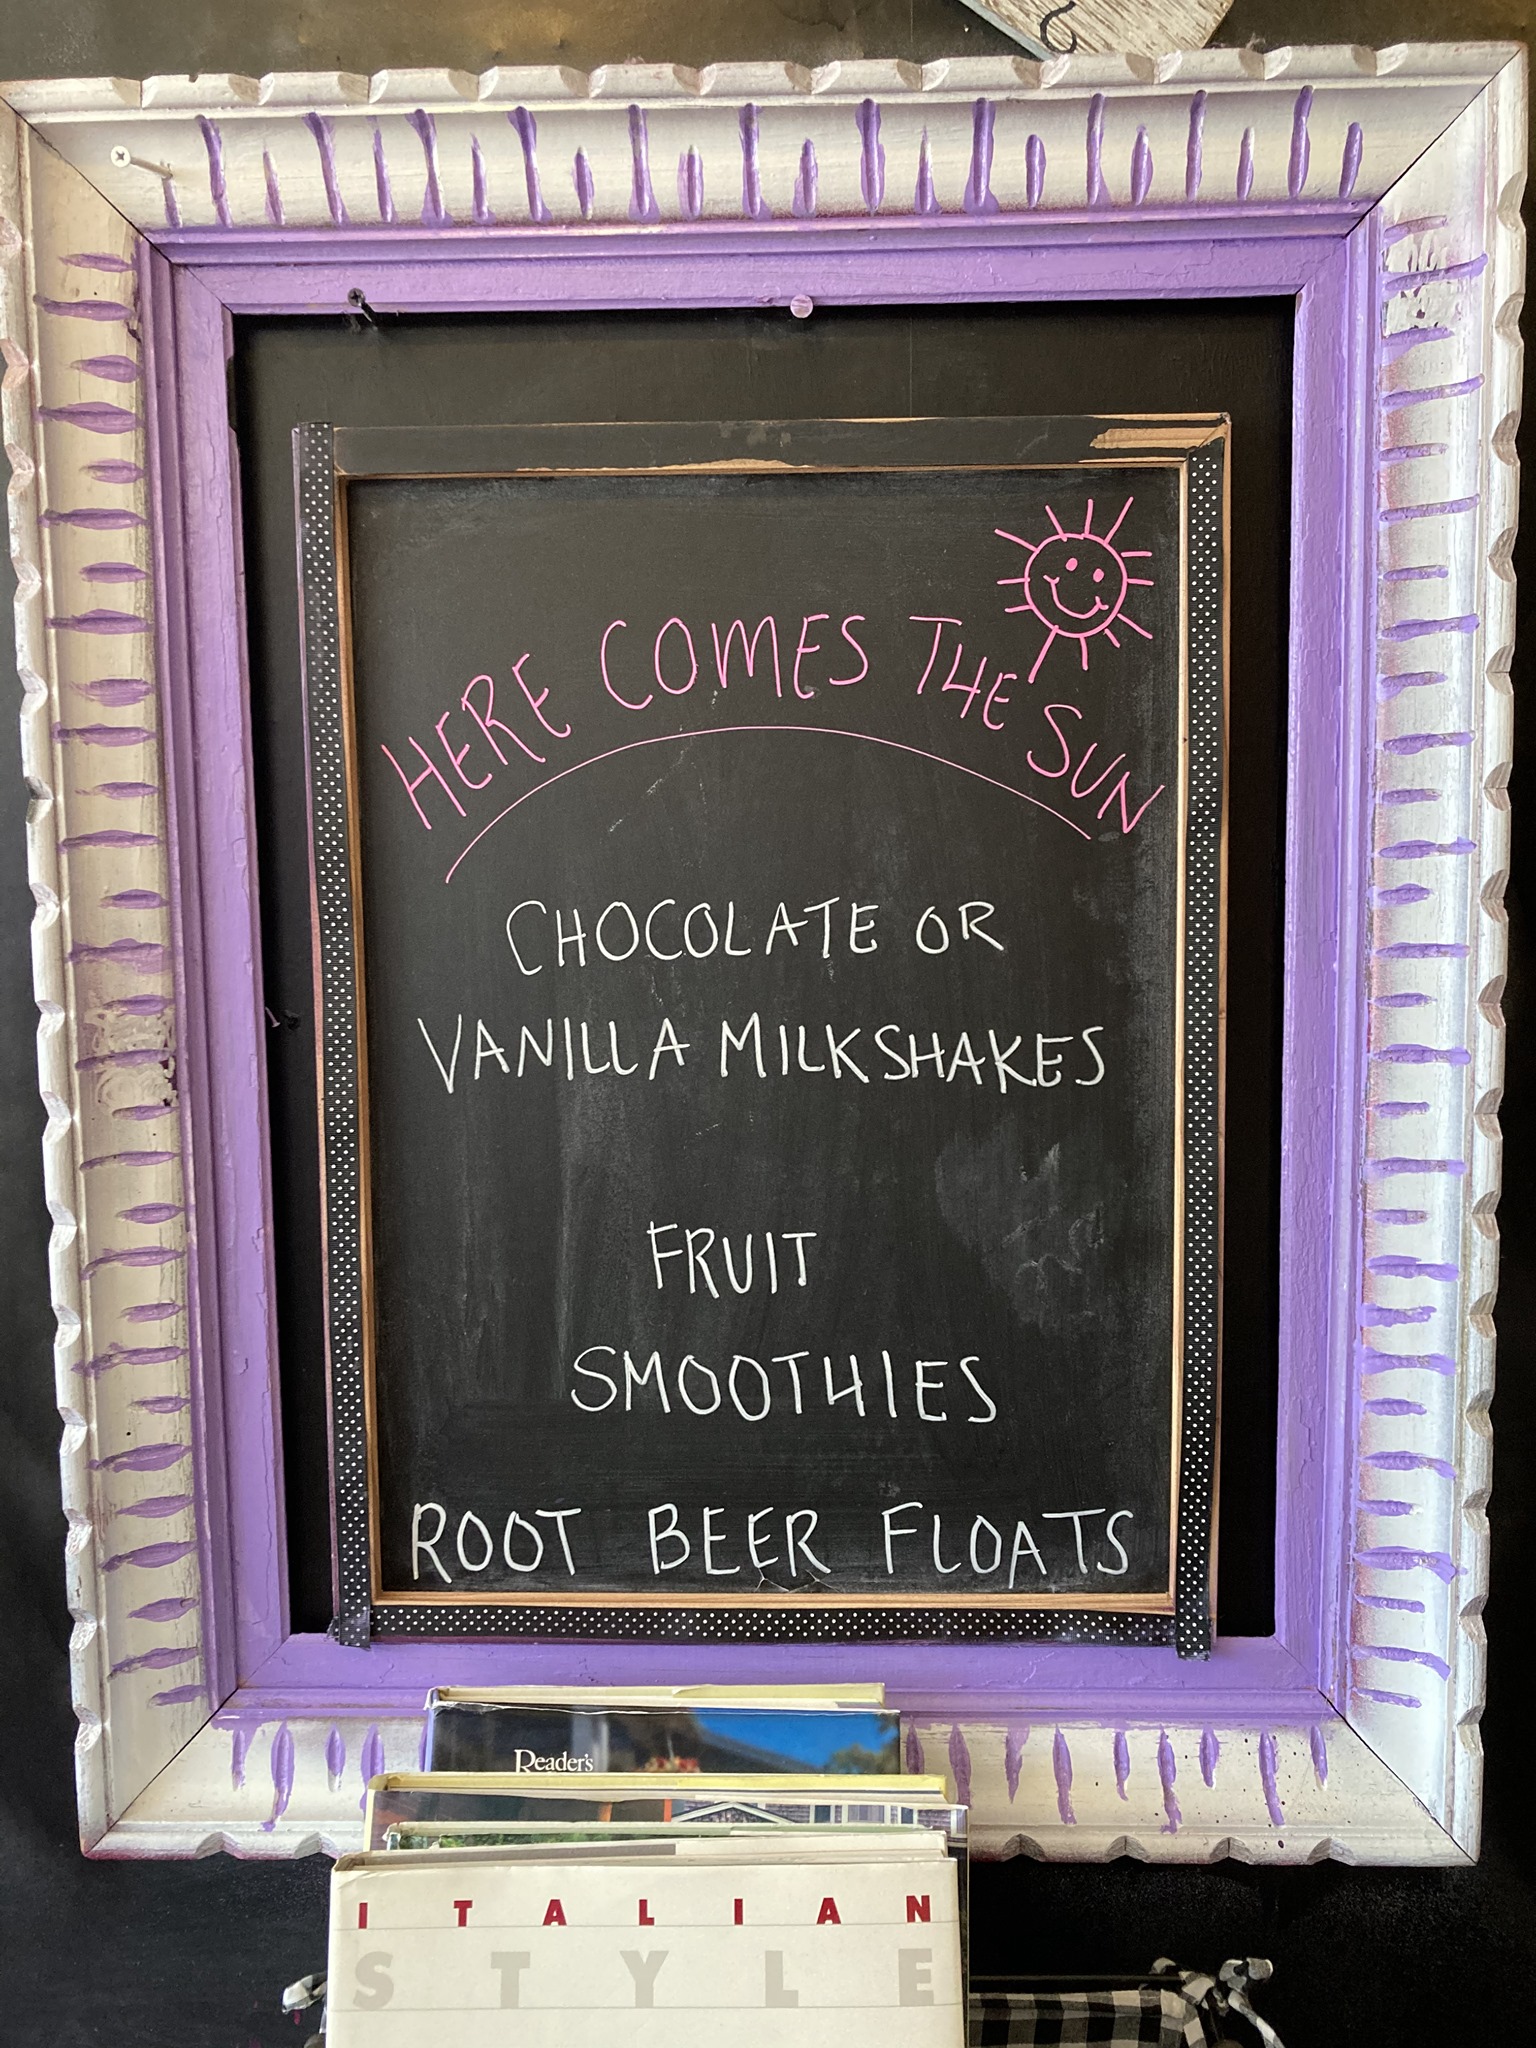 HERE COMES THE SUN
CHOCOLATE OR
VANILLA MILKSHAKES
FRUIT
SMOOTHIES
ROOT BEER FLOATS
Reader's
ITALIAN
STYLE